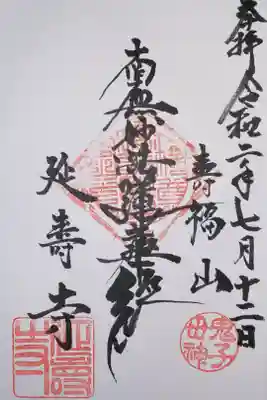 奉拝 令和二年七月十二日
壽福山
南無妙法蓮華経
延壽寺
鬼子母神
延壽寺